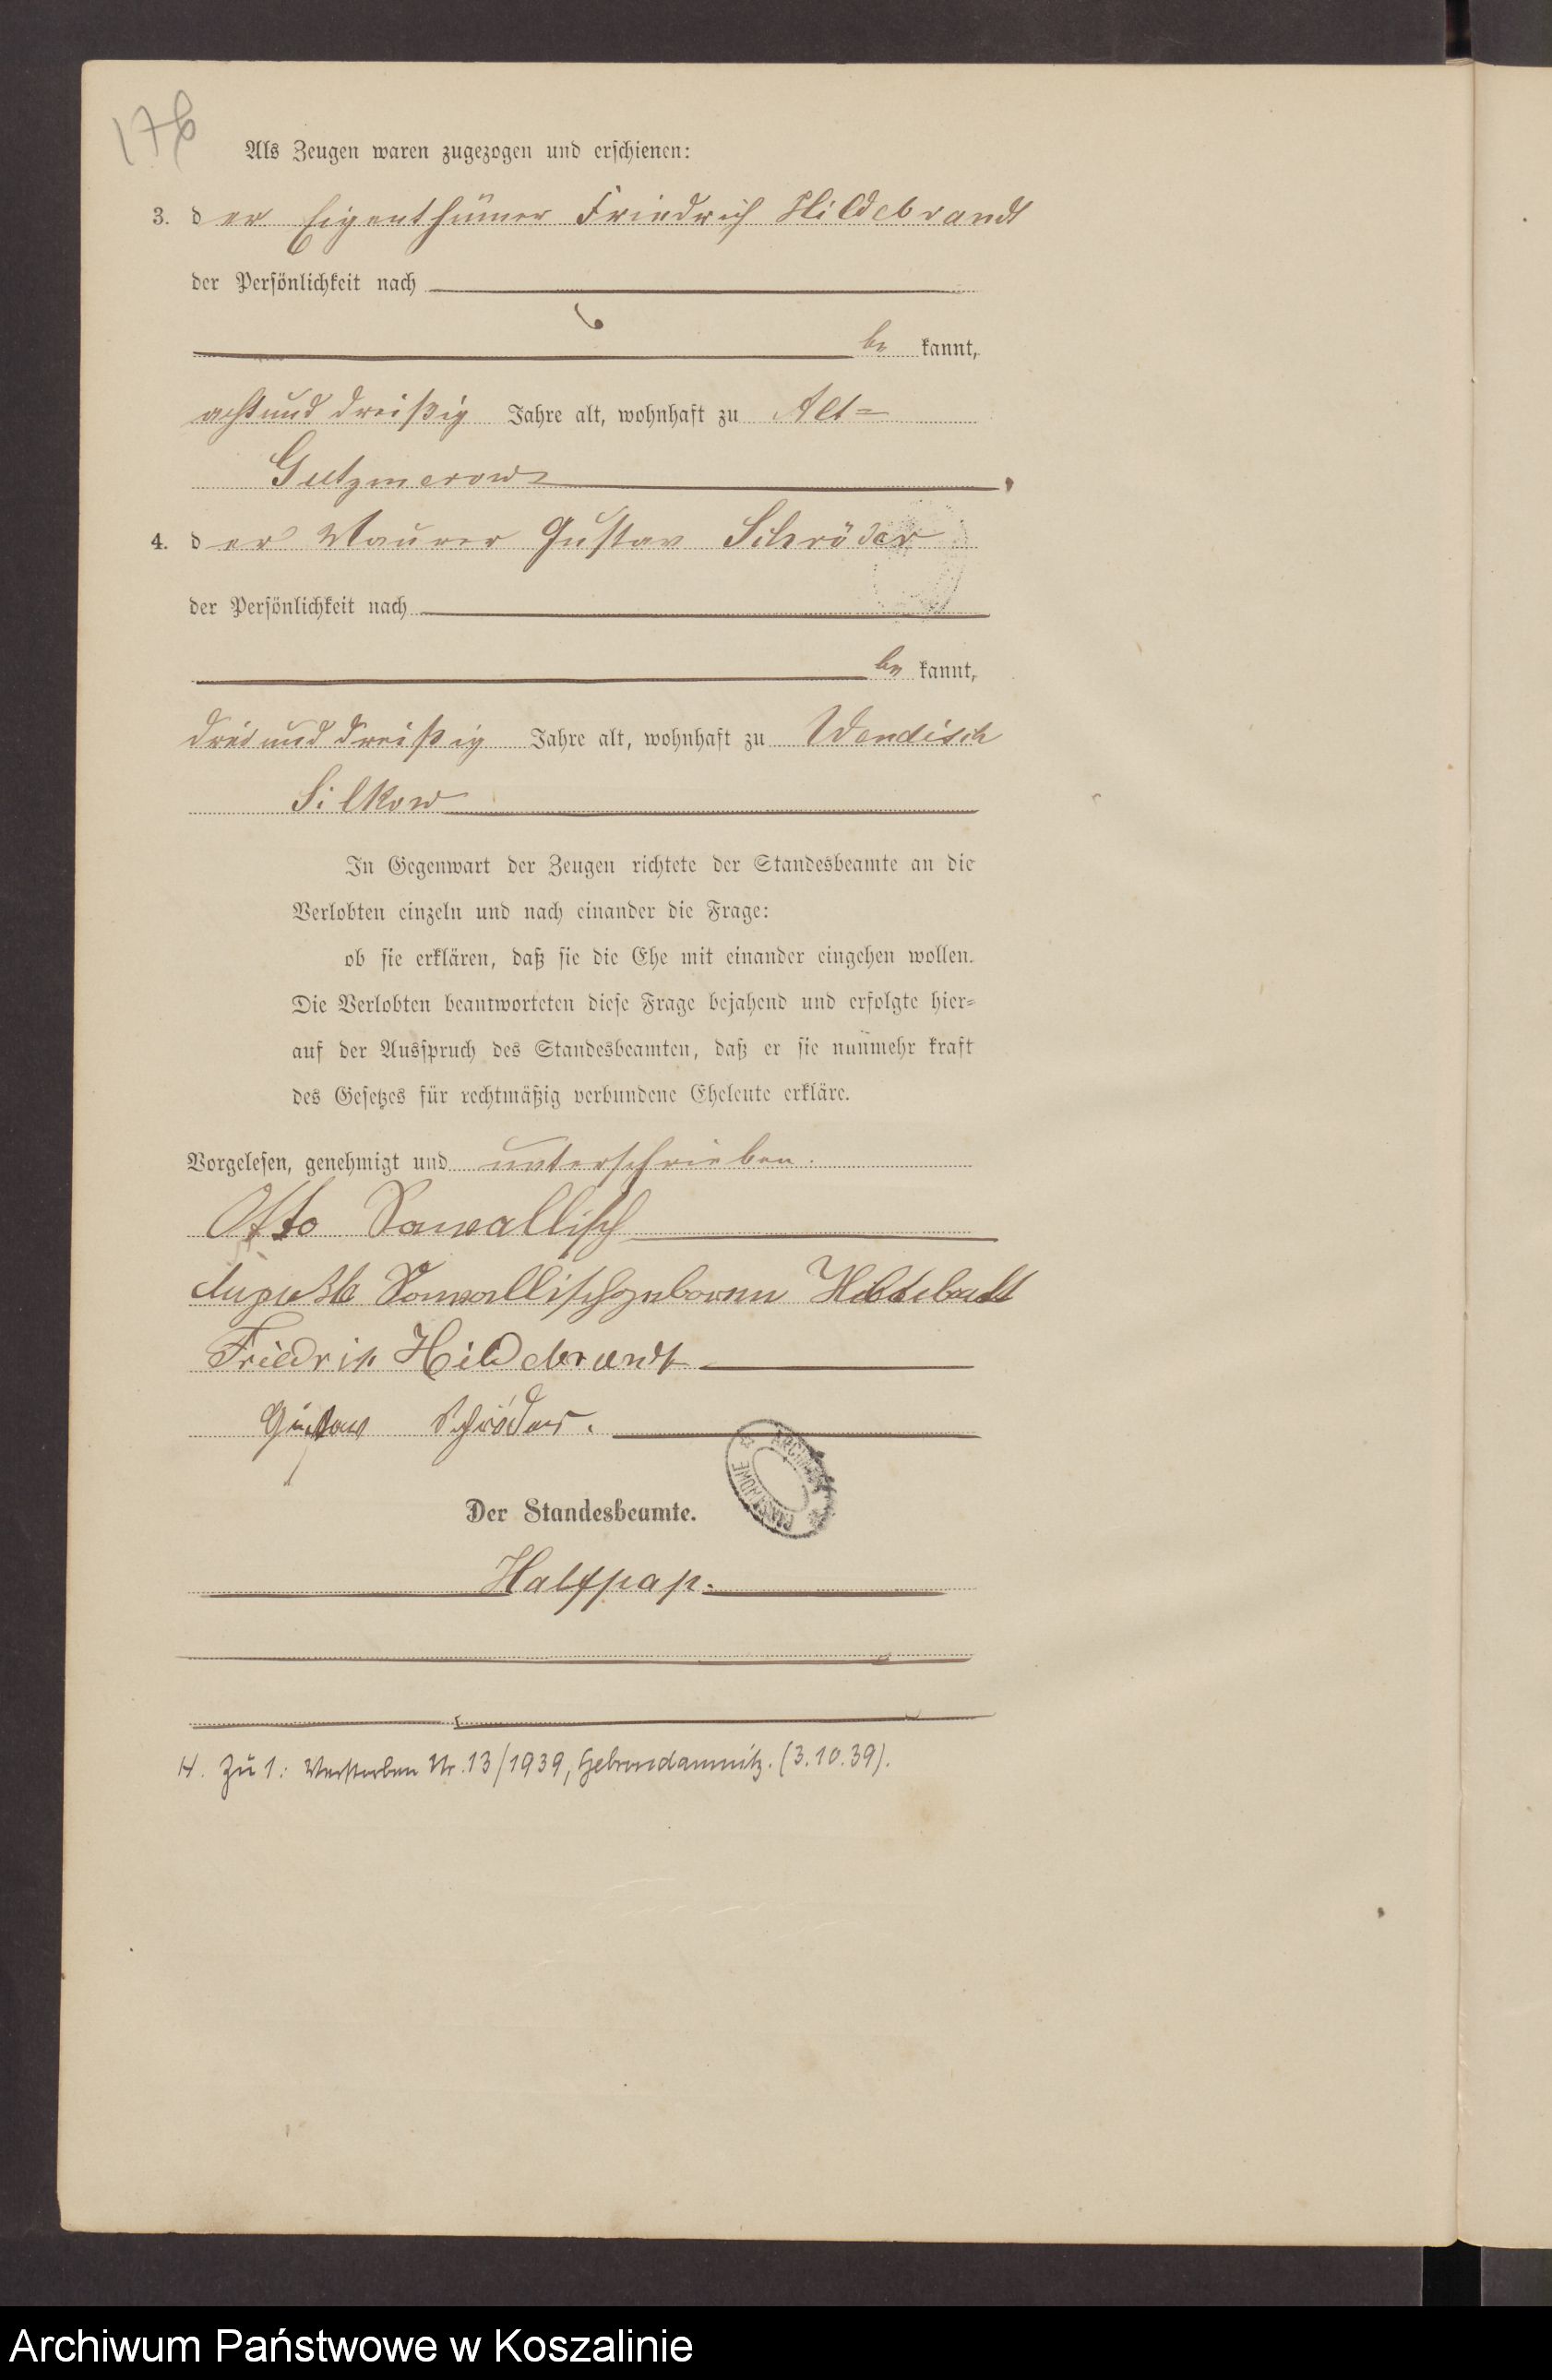 176
Als Zeugen waren zugezogen und erschienen:
3. der Eigenthümer Friedrich Hildebrandt
der Persönlichkeit nach
be kannt,
achtund dreißig Jahre alt, wohnhaft zu Alt=
Gutzmerow
4. der Maurer Gustav Schröder
der Persönlichkeit nach
be kannt,
dreiund dreißig Jahre alt, wohnhaft zu Wendisch
Silkow
In Gegenwart der Zeugen richtete der Standesbeamte an die
Verlobten einzeln und nach einander die Frage:
ob sie erklären, daß sie die Ehe mit einander eingehen wollen.
Die Verlobten beantworteten diese Frage bejahend und erfolgte hier=
auf der Ausspruch des Standesbeamten, daß er sie nunmehr kraft
des Gesetzes für rechtmäßig verbundene Eheleute erkläre.
Vorgelesen, genehmigt und unterschrieben.
Otto Sawallisch
Auguste Sawallisch geborene Hildebrandt
Friedrich Hildebrandt
Gustav Schröder.
Der Standesbeamte.
Halfpap.
H. Zu 1: Verstorben Nr. 13/1939, Hebrondamnitz. (3.10.39).
Archiwum Państwowe w Koszalinie